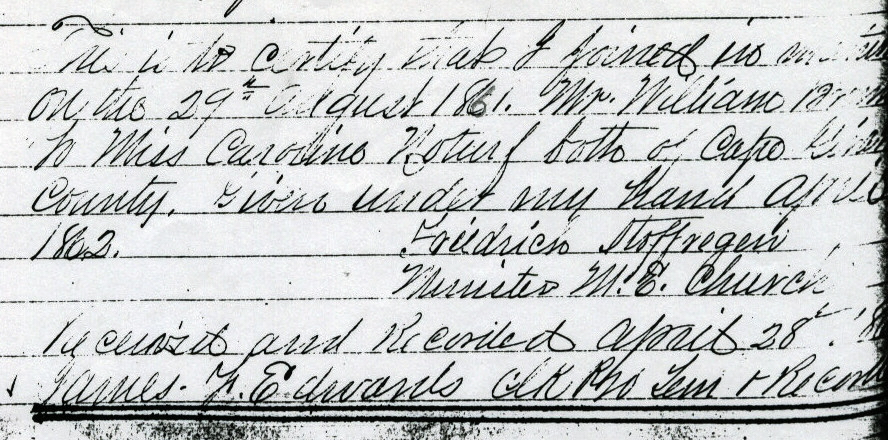 This is to certify that I joined in
on the 29th August 1861. Mr. William
to Miss Caroline Noturf both of Cape
County. Given under my hand April
1862. Friedrich Stoffregen
Minister M.E. Church
Received and Recorded April 28th
James. F. Edwards Clk Pro Tem & Record